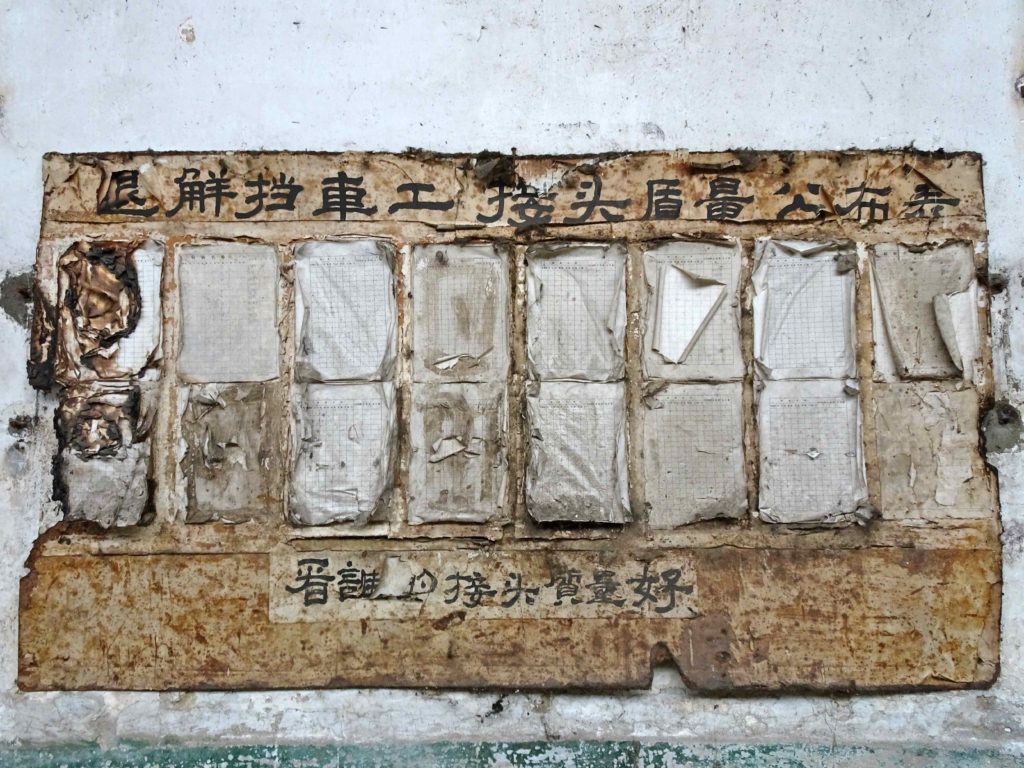 退觧挡車工 接头质量公布表
看誰的接头質量好